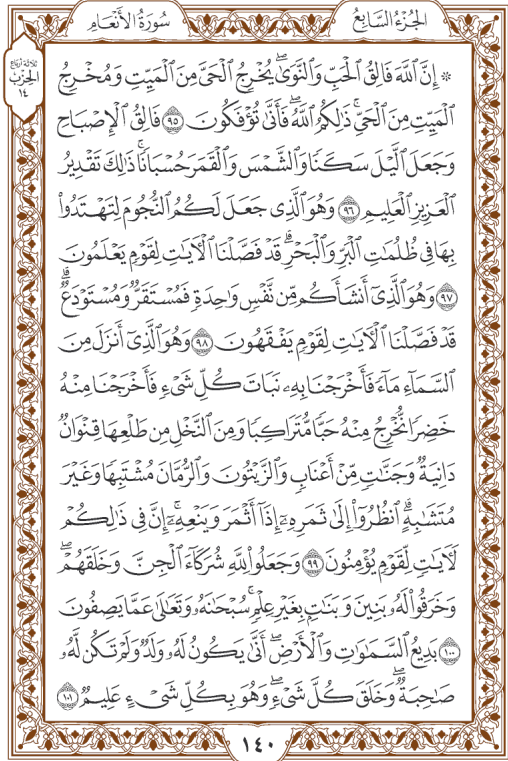 الجُزْءُ السَّابِعُ
سُورَةُ الأَنْعَامِ
ثلاثة أرباع
الحِزْب
١٤
۞ إِنَّ ٱللَّهَ فَالِقُ ٱلْحَبِّ وَٱلنَّوَىٰۖ يُخْرِجُ ٱلْحَيَّ مِنَ ٱلْمَيِّتِ وَمُخْرِجُ
ٱلْمَيِّتِ مِنَ ٱلْحَيِّۚ ذَٰلِكُمُ ٱللَّهُۖ فَأَنَّىٰ تُؤْفَكُونَ ٩٥ فَالِقُ ٱلْإِصْبَاحِ
وَجَعَلَ ٱلَّيْلَ سَكَنًا وَٱلشَّمْسَ وَٱلْقَمَرَ حُسْبَانًاۚ ذَٰلِكَ تَقْدِيرُ
ٱلْعَزِيزِ ٱلْعَلِيمِ ٩٦ وَهُوَ ٱلَّذِي جَعَلَ لَكُمُ ٱلنُّجُومَ لِتَهْتَدُوا۟
بِهَا فِي ظُلُمَٰتِ ٱلْبَرِّ وَٱلْبَحْرِۗ قَدْ فَصَّلْنَا ٱلْءَايَٰتِ لِقَوْمٍ يَعْلَمُونَ
٩٧ وَهُوَ ٱلَّذِيٓ أَنشَأَكُم مِّن نَّفْسٍ وَٰحِدَةٍ فَمُسْتَقَرٌّ وَمُسْتَوْدَعٌۗ
قَدْ فَصَّلْنَا ٱلْءَايَٰتِ لِقَوْمٍ يَفْقَهُونَ ٩٨ وَهُوَ ٱلَّذِيٓ أَنزَلَ مِنَ
ٱلسَّمَآءِ مَآءً فَأَخْرَجْنَا بِهِۦ نَبَاتَ كُلِّ شَيْءٍ فَأَخْرَجْنَا مِنْهُ
خَضِرًا نُّخْرِجُ مِنْهُ حَبًّا مُّتَرَاكِبًا وَمِنَ ٱلنَّخْلِ مِن طَلْعِهَا قِنْوَانٌ
دَانِيَةٌ وَجَنَّٰتٍ مِّنْ أَعْنَابٍ وَٱلزَّيْتُونَ وَٱلرُّمَّانَ مُشْتَبِهًا وَغَيْرَ
مُتَشَٰبِهٍۗ ٱنظُرُوٓا۟ إِلَىٰ ثَمَرِهِۦٓ إِذَآ أَثْمَرَ وَيَنْعِهِۦٓۚ إِنَّ فِي ذَٰلِكُمْ
لَءَايَٰتٍ لِّقَوْمٍ يُؤْمِنُونَ ٩٩ وَجَعَلُوا۟ لِلَّهِ شُرَكَآءَ ٱلْجِنَّ وَخَلَقَهُمْۖ
وَخَرَقُوا۟ لَهُۥ بَنِينَ وَبَنَٰتٍۭ بِغَيْرِ عِلْمٍۚ سُبْحَٰنَهُۥ وَتَعَٰلَىٰ عَمَّا يَصِفُونَ
١٠٠ بَدِيعُ ٱلسَّمَٰوَٰتِ وَٱلْأَرْضِۖ أَنَّىٰ يَكُونُ لَهُۥ وَلَدٌ وَلَمْ تَكُن لَّهُۥ
صَٰحِبَةٌۖ وَخَلَقَ كُلَّ شَيْءٍۖ وَهُوَ بِكُلِّ شَيْءٍ عَلِيمٌ ١٠١
١٤٠